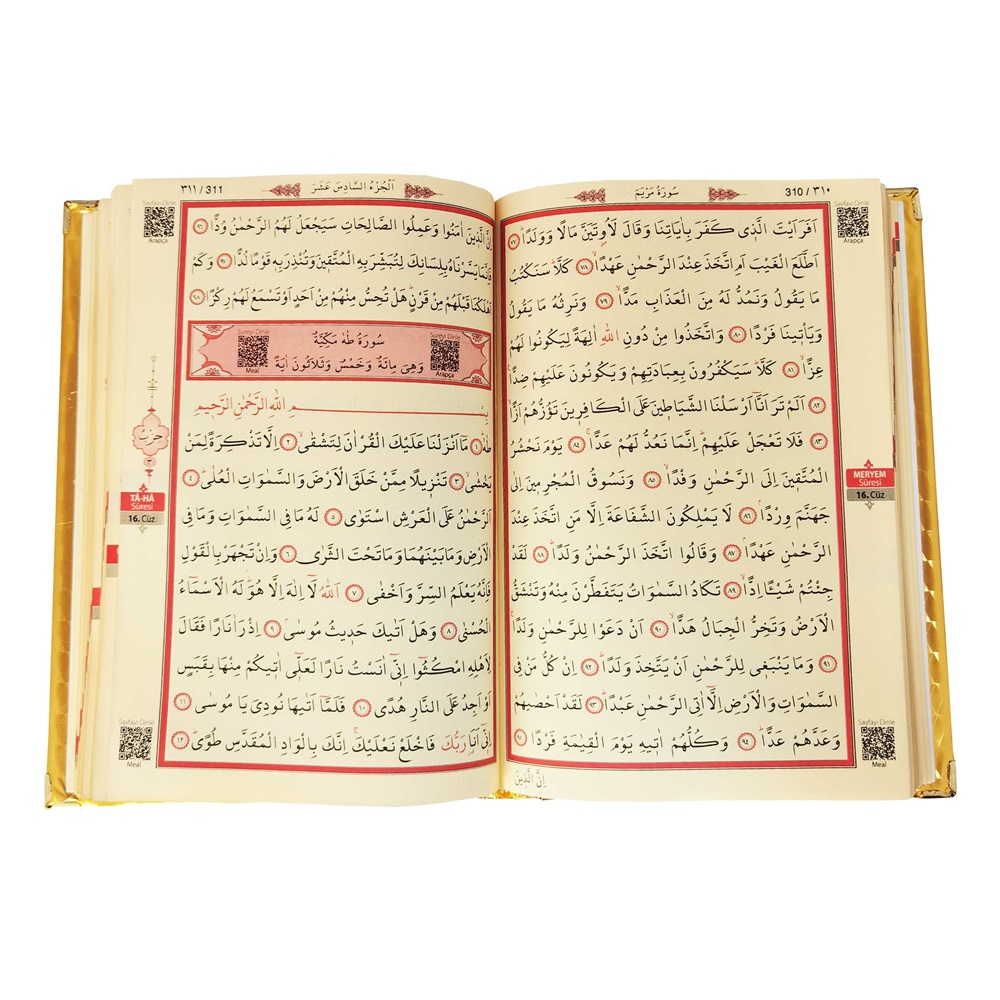 310 / ٣١٠
سُورَةُ مَرْيَمَ
Sayfayı Dinle
Arapça
اَفَرَاَيْتَ الَّذ۪ي كَفَرَ بِاٰيَاتِنَا وَقَالَ لَاُو۫تَيَنَّ مَالًا وَوَلَدًاۜ ﴿٧٧﴾
اَطَّلَعَ الْغَيْبَ اَمِ اتَّخَذَ عِنْدَ الرَّحْمٰنِ عَهْدًاۙ ﴿٧٨﴾ كَلَّاۜ سَنَكْتُبُ
مَا يَقُولُ وَنَمُدُّ لَهُ مِنَ الْعَذَابِ مَدًّاۙ ﴿٧٩﴾ وَنَرِثُهُ مَا يَقُولُ
وَيَأْت۪ينَا فَرْدًا ﴿٨٠﴾ وَاتَّخَذُوا مِنْ دُونِ اللّٰهِ اٰلِهَةً لِيَكُونُوا لَهُمْ
عِزًّاۙ ﴿٨١﴾ كَلَّاۜ سَيَكْفُرُونَ بِعِبَادَتِهِمْ وَيَكُونُونَ عَلَيْهِمْ ضِدًّا۟
﴿٨٢﴾ اَلَمْ تَرَ اَنَّٓا اَرْسَلْنَا الشَّيَاط۪ينَ عَلَى الْكَافِر۪ينَ تَؤُزُّهُمْ اَزًّاۙ
﴿٨٣﴾ فَلَا تَعْجَلْ عَلَيْهِمْۜ اِنَّمَا نَعُدُّ لَهُمْ عَدًّاۚ ﴿٨٤﴾ يَوْمَ نَحْشُرُ
الْمُتَّق۪ينَ اِلَى الرَّحْمٰنِ وَفْدًاۙ ﴿٨٥﴾ وَنَسُوقُ الْمُجْرِم۪ينَ اِلٰى
جَهَنَّمَ وِرْدًاۢ ﴿٨٦﴾ لَا يَمْلِكُونَ الشَّفَاعَةَ اِلَّا مَنِ اتَّخَذَ عِنْدَ
الرَّحْمٰنِ عَهْدًاۢ ﴿٨٧﴾ وَقَالُوا اتَّخَذَ الرَّحْمٰنُ وَلَدًاۜ ﴿٨٨﴾ لَقَدْ
جِئْتُمْ شَيْـًٔا اِدًّاۙ ﴿٨٩﴾ تَكَادُ السَّمٰوَاتُ يَتَفَطَّرْنَ مِنْهُ وَتَنْشَقُّ
الْاَرْضُ وَتَخِرُّ الْجِبَالُ هَدًّاۙ ﴿٩٠﴾ اَنْ دَعَوْا لِلرَّحْمٰنِ وَلَدًاۚ
﴿٩١﴾ وَمَا يَنْبَغ۪ي لِلرَّحْمٰنِ اَنْ يَتَّخِذَ وَلَدًاۜ ﴿٩٢﴾ اِنْ كُلُّ مَنْ فِي
السَّمٰوَاتِ وَالْاَرْضِ اِلَّٓا اٰتِي الرَّحْمٰنِ عَبْدًاۜ ﴿٩٣﴾ لَقَدْ اَحْصٰيهُمْ
وَعَدَّهُمْ عَدًّاۜ ﴿٩٤﴾ وَكُلُّهُمْ اٰت۪يهِ يَوْمَ الْقِيٰمَةِ فَرْدًا ﴿٩٥﴾
MERYEM
Sûresi
16. Cüz
Sayfayı Dinle
Meal
اِنَّ الَّذ۪ينَ
اَلْجُزْءُ السَّادِسَ عَشَرَ
٣١١ / 311
Sayfayı Dinle
Arapça
اِنَّ الَّذ۪ينَ اٰمَنُوا وَعَمِلُوا الصَّالِحَاتِ سَيَجْعَلُ لَهُمُ الرَّحْمٰنُ وُدًّا ﴿٩٦﴾
فَاِنَّمَا يَسَّرْنَاهُ بِلِسَانِكَ لِتُبَشِّرَ بِهِ الْمُتَّق۪ينَ وَتُنْذِرَ بِه۪ قَوْمًا لُدًّا ﴿٩٧﴾ وَكَمْ
اَهْلَكْنَا قَبْلَهُمْ مِنْ قَرْنٍۜ هَلْ تُحِسُّ مِنْهُمْ مِنْ اَحَدٍ اَوْ تَسْمَعُ لَهُمْ رِكْزًا ﴿٩٨﴾
Sureyi Dinle
Arapça
سُورَةُ طٰهٰ مَكِّيَّةٌ
وَهِيَ مِائَةٌ وَخَمْسٌ وَثَلَاثُونَ اٰيَةً
Sureyi Dinle
Meal
بِسْمِ اللّٰهِ الرَّحْمٰنِ الرَّح۪يمِ
طٰهٰۜ ﴿١﴾ مَٓا اَنْزَلْنَا عَلَيْكَ الْقُرْاٰنَ لِتَشْقٰىۙ ﴿٢﴾ اِلَّا تَذْكِرَةً لِمَنْ
يَخْشٰىۙ ﴿٣﴾ تَنْز۪يلًا مِمَّنْ خَلَقَ الْاَرْضَ وَالسَّمٰوَاتِ الْعُلٰىۜ ﴿٤﴾
اَلرَّحْمٰنُ عَلَى الْعَرْشِ اسْتَوٰى ﴿٥﴾ لَهُ مَا فِي السَّمٰوَاتِ وَمَا فِي
الْاَرْضِ وَمَا بَيْنَهُمَا وَمَا تَحْتَ الثَّرٰى ﴿٦﴾ وَاِنْ تَجْهَرْ بِالْقَوْلِ
فَاِنَّهُ يَعْلَمُ السِّرَّ وَاَخْفٰى ﴿٧﴾ اَللّٰهُ لَٓا اِلٰهَ اِلَّا هُوَۜ لَهُ الْاَسْمَٓاءُ
الْحُسْنٰى ﴿٨﴾ وَهَلْ اَتٰيكَ حَد۪يثُ مُوسٰىۢ ﴿٩﴾ اِذْ رَاٰ نَارًا فَقَالَ
لِاَهْلِهِ امْكُثُٓوا اِنّ۪ٓي اٰنَسْتُ نَارًا لَعَلّ۪ٓي اٰت۪يكُمْ مِنْهَا بِقَبَسٍ
اَوْ اَجِدُ عَلَى النَّارِ هُدًى ﴿١٠﴾ فَلَمَّٓا اَتٰيهَا نُودِيَ يَا مُوسٰى ﴿١١﴾
اِنّ۪ٓي اَنَا۬ رَبُّكَ فَاخْلَعْ نَعْلَيْكَۚ اِنَّكَ بِالْوَادِ الْمُقَدَّسِ طُوًىۜ ﴿١٢﴾
حزب
٢
TÂ-HÂ
Sûresi
16. Cüz
Sayfayı Dinle
Meal